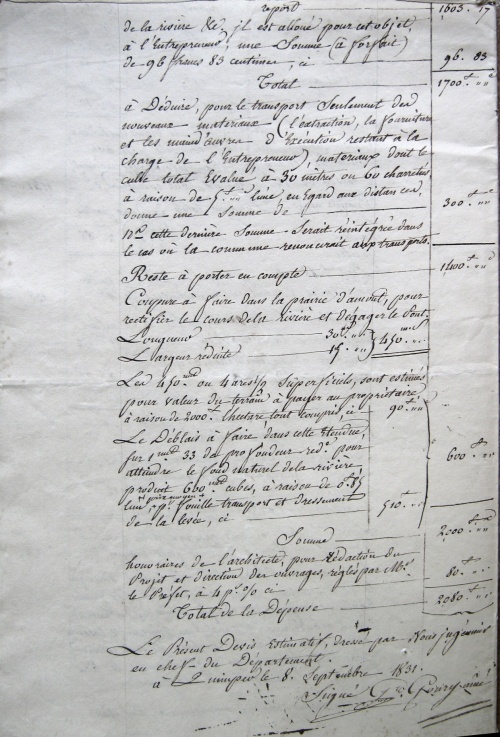 report 1603. 17
de la rivière &c, il est alloué pour cet objet,
à l'Entrepreneur, une Somme (à forfait)
de 96 francs 83 centimes, ci 96. 83
Total 1700 f. " "
à Déduire, pour le transport Seulement des
nouveaux materiaux (l'extraction, la fourniture
et les mains d'œuvres d'Execution restant à la
charge de l'Entrepreneur), materiaux dont le
cube total Evalué à 30 mètres ou 60 charretées
à raison de 5 f. " " l'une, eu Egard aux distances,
donne une Somme de 300 f. " "
Na cette dernière Somme Serait réintégrée dans
le cas où la commune renoncerait aux transports.
Reste à porter en compte 1400 f. " "
Coupure à faire dans la prairie d'amont, pour
rectifier le cours de la rivière et dégager le Pont.
Longueur 30 m. " "
Largeur réduite 15. " " 450 m. "
Les 450 m ou 4 ares 1/2 Superficiels, sont estimés
pour valeur du terrain à payer au propriétaire,
à raison de 2000 f l'hectare tout compris, ci 90. " "
Le Déblais à faire, dans cette Etendue,
sur 1 m 33 de profondeur red.e pour
atteindre le fond naturel de la rivière,
produit 600 m cubes, à raison de 0 f. 85
l'un, prix moyen, pr. fouille transport et dressement
de la levée, ci 510 f. " " 600 f. " "
Somme 2000 f. " "
honoraires de l'architecte, pour Rédaction du
Projet et direction des ouvrages, réglés par Mr.
le Préfet, à 4 p.r % ci 80 f. " "
Total de la Dépense 2080 f. " "
Le Présent Devis Estimatif, dressé par Nous ingénieur
en chef du Département.
à Quimper le 8. Septembre 1831.
Signé Goury ainé